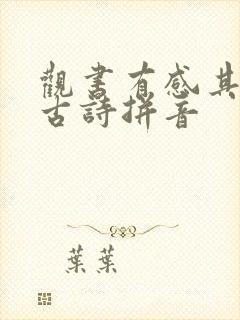 觀書有感其
古詩拼音
葉葉